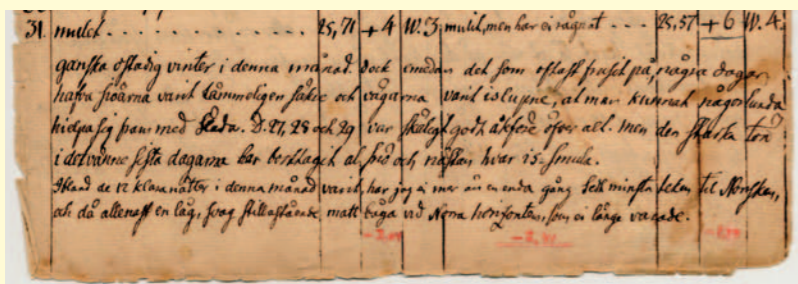 31. mulet . . . . . . . . . . . . . 25,71 +4 W. 3. mulit, men har ei rägnat - - - 25,57 +6 W. 4.
ganska ostadig vinter i denna månad. Dock emedan det som oftast frusit på, några dagar,
hafva siöarna varit tämmeligen säkre och vägarna varit islupne, at man kunnat någorlunda
hielpa sig fram med Släda. D. 27, 28 och 29 var skäligt godt åkföre öfver alt. men den starka tön
i de tvänne sista dagarna har borttagit al snö och nästan hvar is-smula.
Ibland de 12 klara nätter i denna månad varit, har jag ei mer än en enda gång sett minsta teken til Norrsken,
och då allenast en låg, svag stillastående matt båga vid Norra horizonten, som ei länge varade.